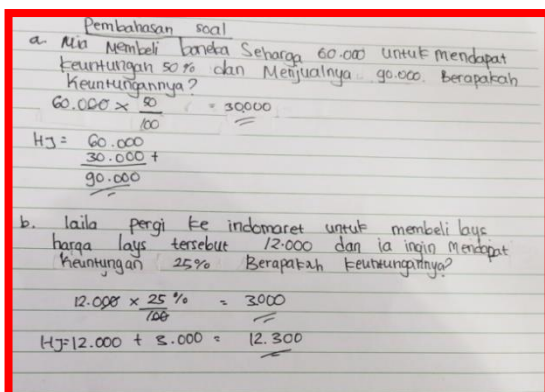 Pembahasan soal
a. Mia Membeli boneka Seharga 60.000 untuk mendapat
keuntungan 50% dan Menjualnya 90.000. Berapakah
keuntungannya?
60.000 × 50/100 = 30.000
HJ = 60.000
30.000 +
90.000
b. laila pergi ke indomaret untuk membeli lays
harga lays tersebut 12.000 dan ia ingin Mendapat
keuntungan 25% Berapakah keuntungannya?
12.000 × 25%/100 = 3000
HJ = 12.000 + 3.000 = 12.300